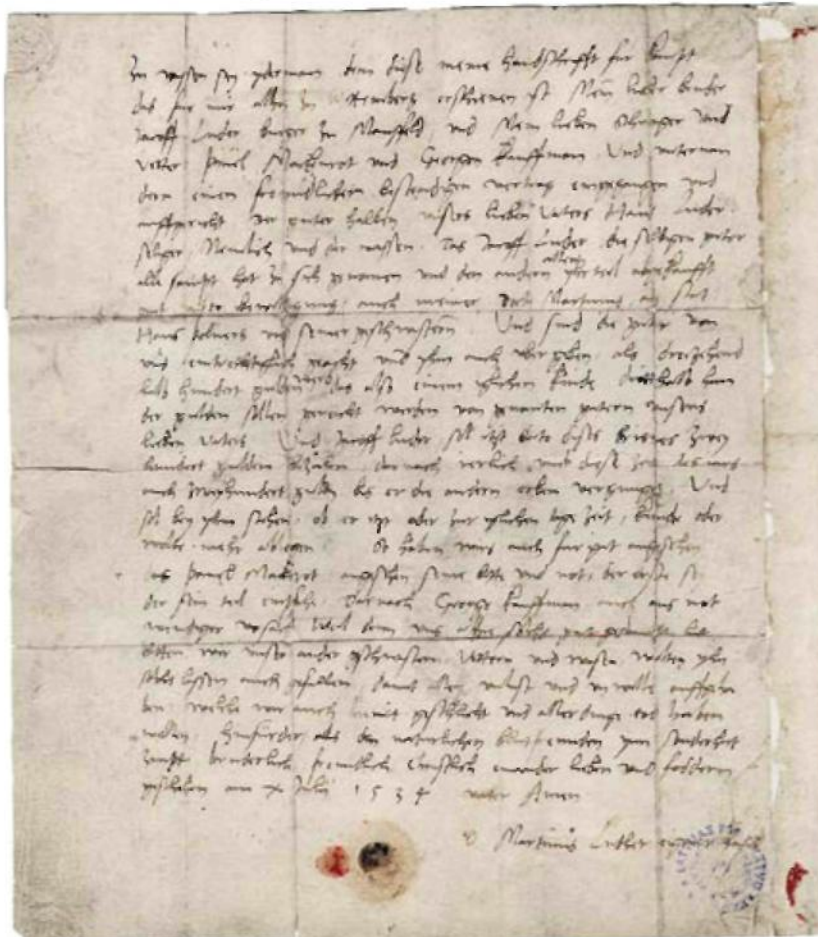 Zu wissen sey yderman dem diese meine handschrifft fur kompt
das fur mir allhie zu Wittemberg erschienen ist Mein lieber bruder
Jacoff Luder burger zu Mansfeld, und Mein lieben Schwager und
Vetter Paul Mackenrot und Georgen Kauffman Und
einen freundlichen bestendigen vertrag eingegangen und
auffgericht der guter halben unsers lieben Vaters Hans Luder
seliger Nemlich und der massen Das Jacoff Luder die selbigen guter
alle sampt hat zu sich genomen und den andern yhr teil abgekaufft
mit bewilligung auch meiner Doctor Martinus an stat
Hans und seiner geschwistern Und sind die guter von
uns eintrechtiglich geacht und yhm auch ubergeben als dreizehend
halb hundert gulden werd das also einem iglichen kinde dritthalb hun
der gulden sollen gereicht werden von genanten gutern unsers
lieben Vaters Und Jacoff Luder sol itzt dato dieses brieves zwey
hundert gulden bezalen darnach jerlich und diese zeit
auch zweyhundert gulden bis er die andern erben vergnuge Und
sol bey yhm stehen, ob er eher oder zur iglichen tage zeit, kunde oder
wolte mehr ablegen So haben wirs auch fur gut angesehen
das Paul Mackenrot angesehen seine bitte und not, der erste sey
der sein teil empfahe Darnach George Kauffman auch aus not
Weil denn uns solchs gut gedaucht hat
bitten wir unser ander geschwistern Vettern und wasen, wolten yhn
solchs lassen auch gefallen, damit aller unlust und unwille auffgeha
ben welche wir auch hiemit geschlicht und allerdinge tod haben
wollen, hinfurder, als den naturlichen blutfreunden zum sonderheit
zympt bruderlich freuntlich Christlich einander lieben und foddern
geschehen am X Julij 1534 Amen
D Martinus Luther